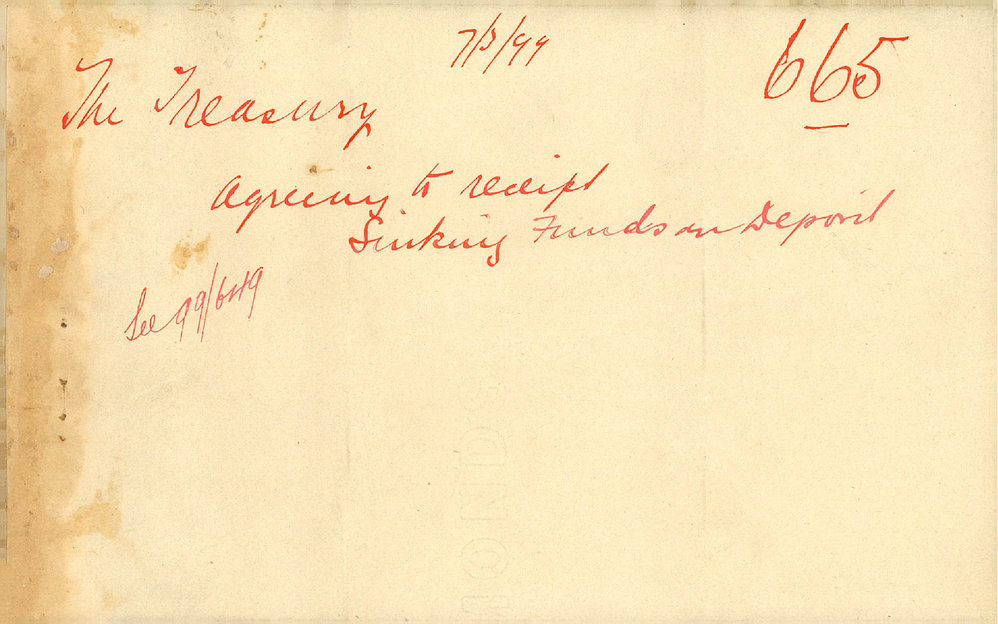 7/3/99
665
The Treasury
Agreeing to receipt
Sinking Funds on Deposit
See 99/649